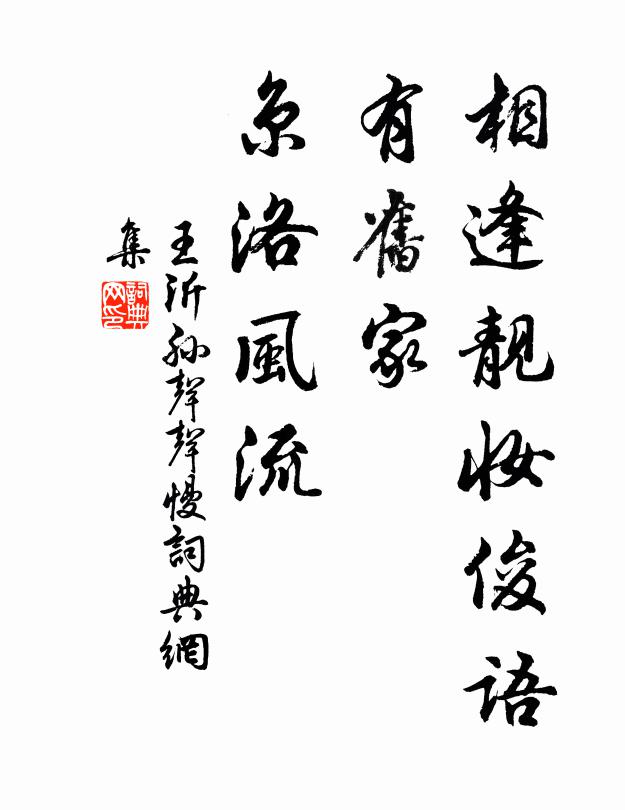 相逢靓妆俊語
有舊家
京洛風流
王沂孫聲聲慢詞典網
集
詞典
网印